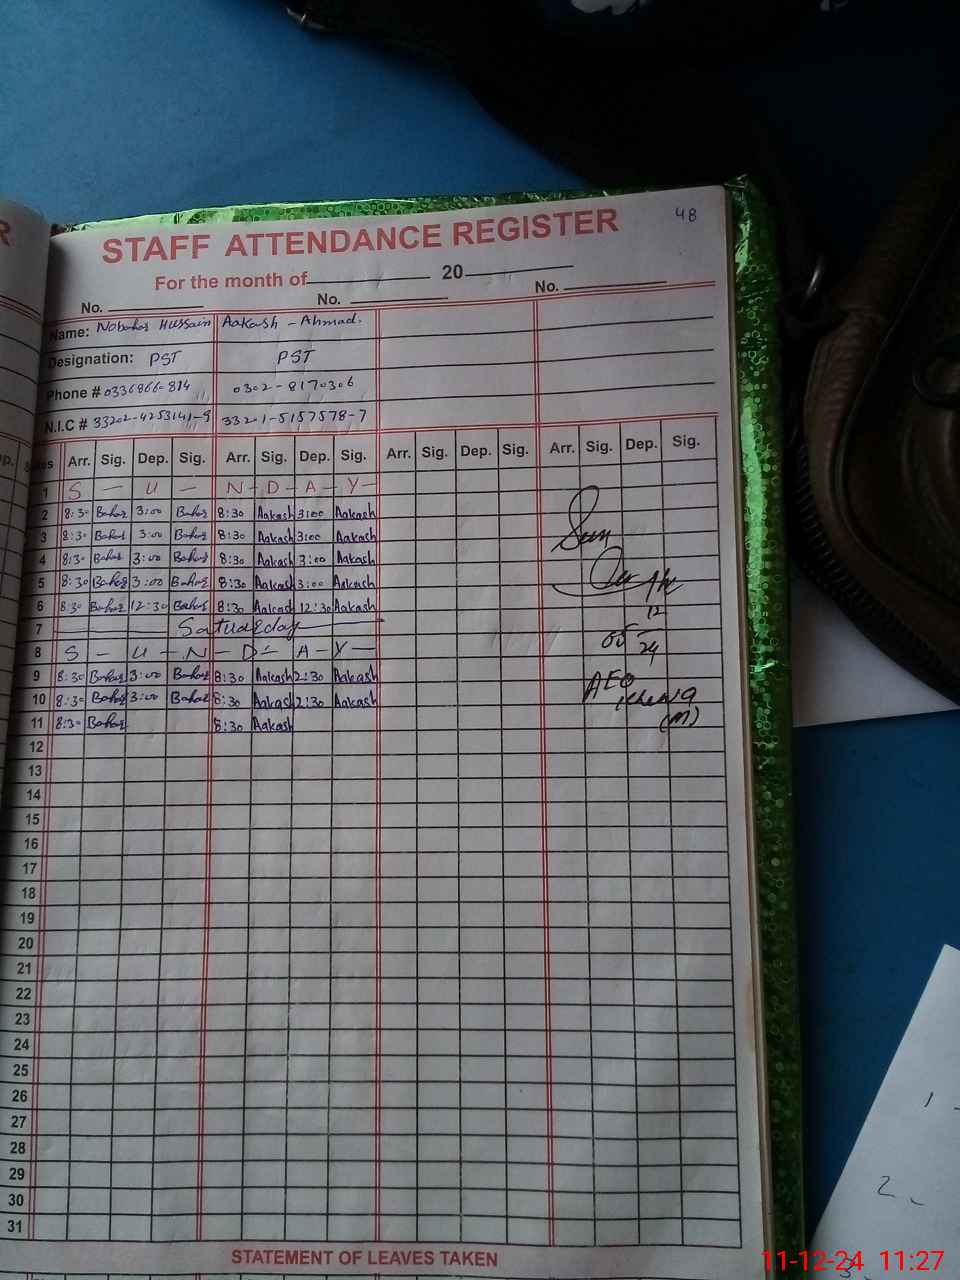 R
48
STAFF ATTENDANCE REGISTER
For the month of 20
No. No. No.
Name: Nobahar Hussain Aakash - Ahmad.
Designation: PST PST
Phone # 0336866-814 0302-8170306
N.I.C # 33202-4253141-9 33201-5157578-7
p. Arr. Sig. Dep. Sig. Arr. Sig. Dep. Sig. Arr. Sig. Dep. Sig. Arr. Sig. Dep. Sig.
1 S - U - N - D - A - Y -
2 8:30 Bahar 3:00 Bahar 8:30 Aakash 3:00 Aakash
3 8:30 Bahar 3:00 Bahar 8:30 Aakash 3:00 Aakash
4 8:30 Bahar 3:00 Bahar 8:30 Aakash 3:00 Aakash
5 8:30 Bahar 3:00 Bahar 8:30 Aakash 3:00 Aakash
6 8:30 Bahar 12:30 Bahar 8:30 Aakash 12:30 Aakash
7 Satuarday
8 S - U - N - D - A - Y -
9 8:30 Bahar 3:00 Bahar 8:30 Aakash 2:30 Aakash
10 8:30 Bahar 3:00 Bahar 8:30 Aakash 2:30 Aakash
11 8:30 Bahar 8:30 Aakash
12
05 24
AEO
(M)
12
13
14
15
16
17
18
19
20
21
22
23
24
25
26
27
28
29
30
31
STATEMENT OF LEAVES TAKEN
1 -
2 -
3
11-12-24 11:27